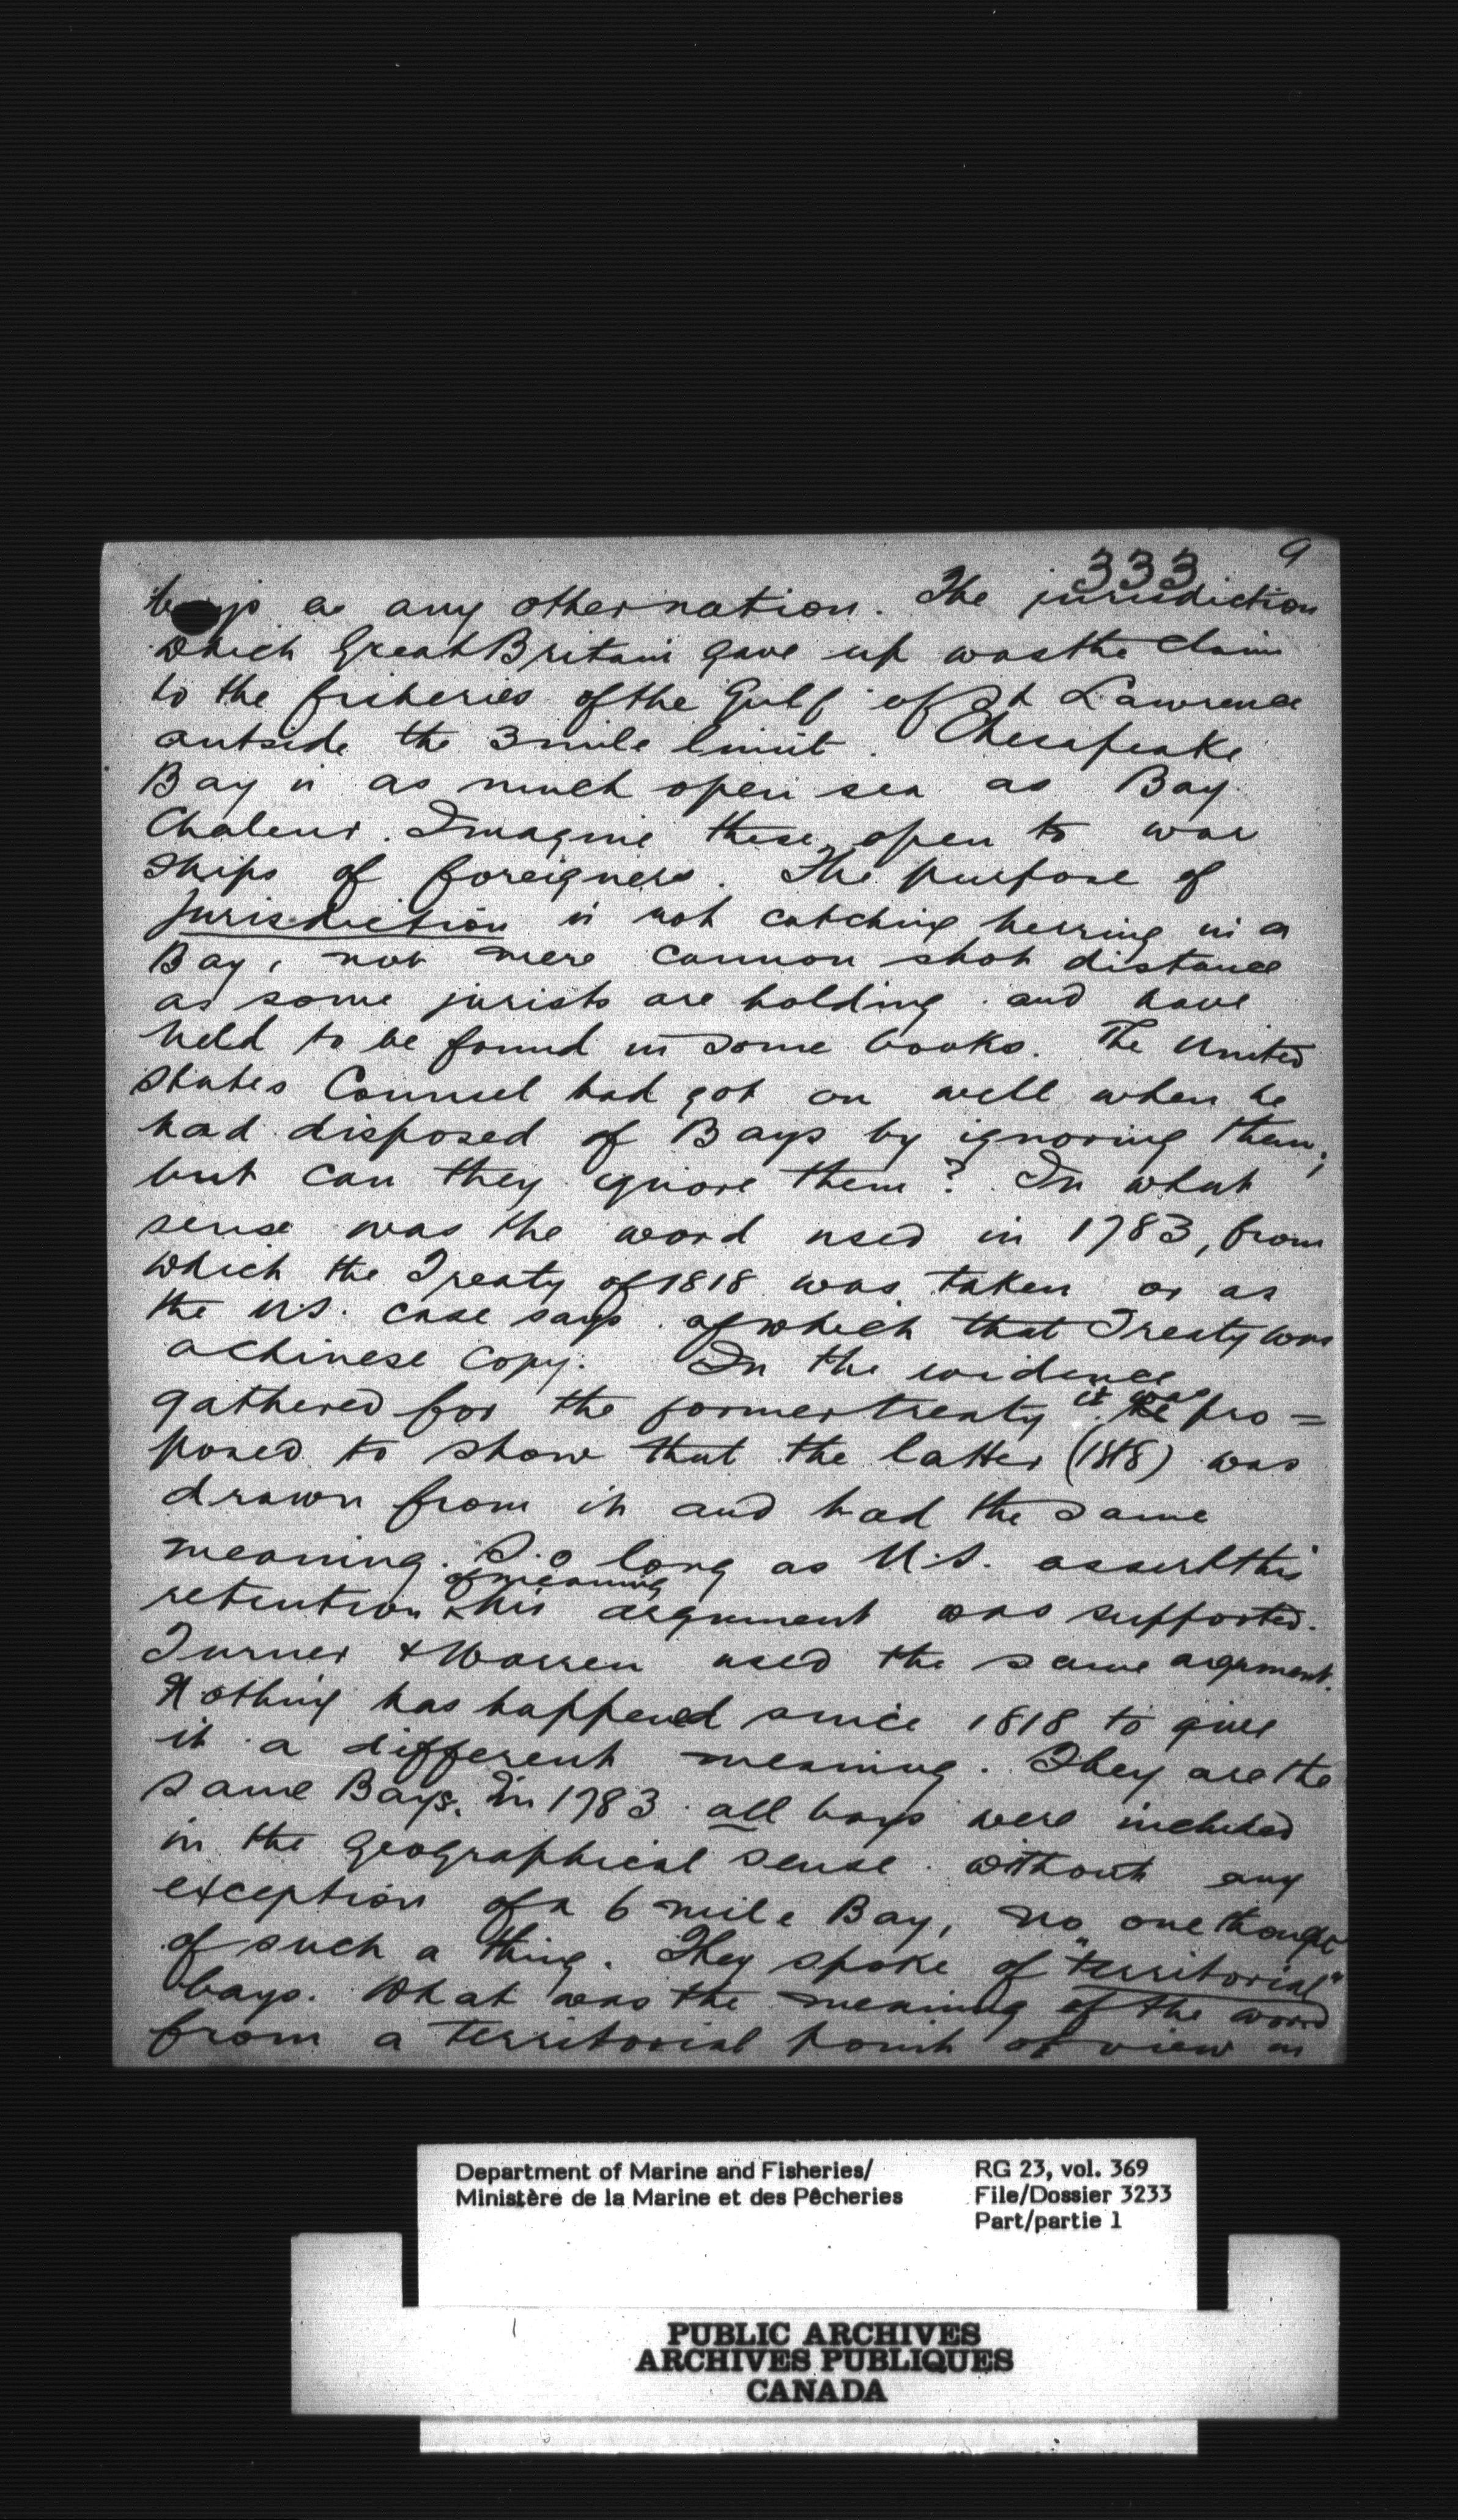 333
9
bays as any other nation. The jurisdiction
which Great Britain gave up was the claim
to the fisheries of the Gulf of St Lawrence
outside the 3 mile limit. Chesapeake
Bay is as much open sea as Bay
Chaleur. Imagine these open to war
ships of foreigners. The purpose of
jurisdiction is not catching herring in a
Bay, nor mere cannon shot distance
as some jurists are holding and have
held to be found in some books. The United
States Counsel had got on well when he
had disposed of Bays by ignoring them;
but can they ignore them? In what
sense was the word used in 1783, from
which the Treaty of 1818 was taken or as
the U.S. case says of which that Treaty was
a Chinese copy. In the evidence
gathered for the former treaty it was pro=
posed to show that the latter (1818) was
drawn from it and had the same
meaning. So long as U.S. assert this
retention of meaning this argument was supported.
Turner & Warren used the same argument.
Nothing has happened since 1818 to give
it a different meaning. They are the
same Bays. In 1783 all bays were included
in the geographical sense without any
exception of a 6 mile Bay, no one thought
of such a thing. They spoke of "territorial"
bays. What was the meaning of the word
from a territorial point of view in
Department of Marine and Fisheries/
Ministère de la Marine et des Pêcheries
RG 23, vol. 369
File/Dossier 3233
Part/partie 1
PUBLIC ARCHIVES
ARCHIVES PUBLIQUES
CANADA